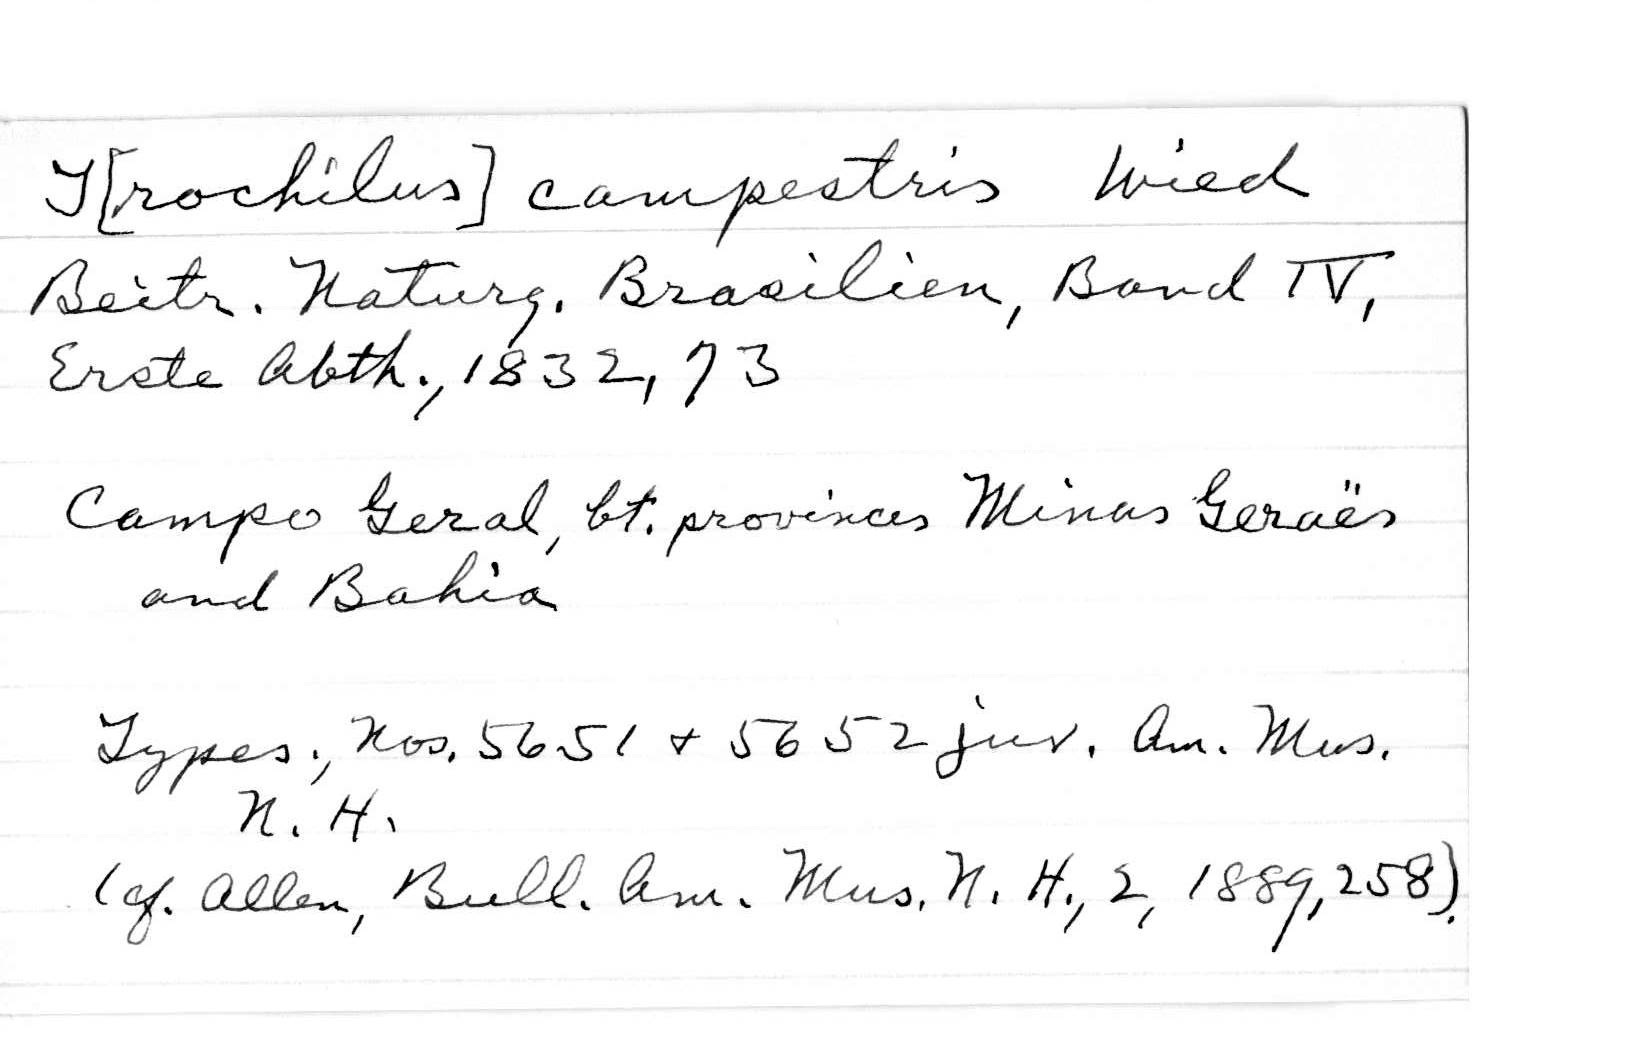 T[rochilus] campestris Wied
Beitr. Naturg. Brasilien, Band IV,
Erste Abth., 1832, 73
Campo Geral, bt. provinces Minas Geraës
and Bahia
Types., Nos. 5651 + 5652 juv. Am. Mus.
N. H.
(cf. Allen, Bull. Am. Mus. N. H., 2, 1889, 258).